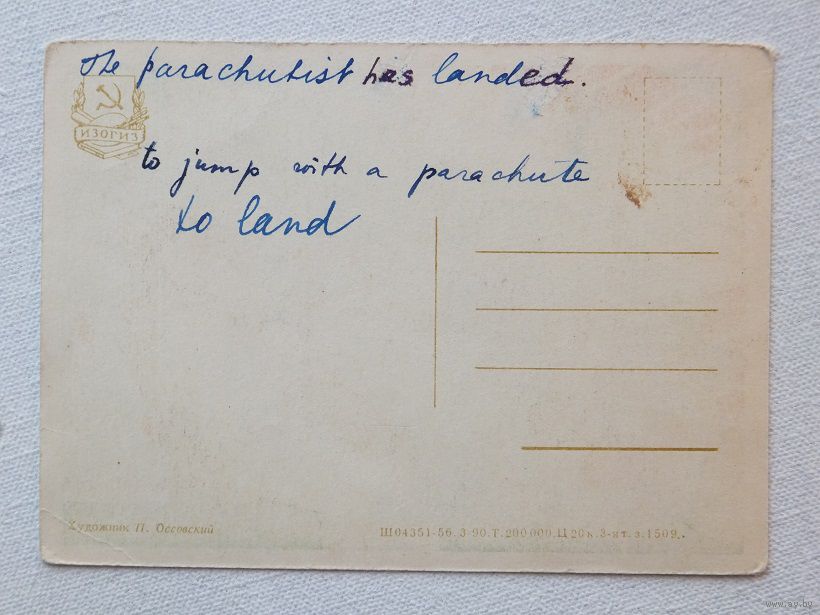 The parachutist has landed.
ИЗОГИЗ
to jump with a parachute
to land
Художник П. Оссовский
Ш04351-56. 3-90. Т. 200 000. Ц 20 к. 3-ят. з. 1509.
www.ay.by